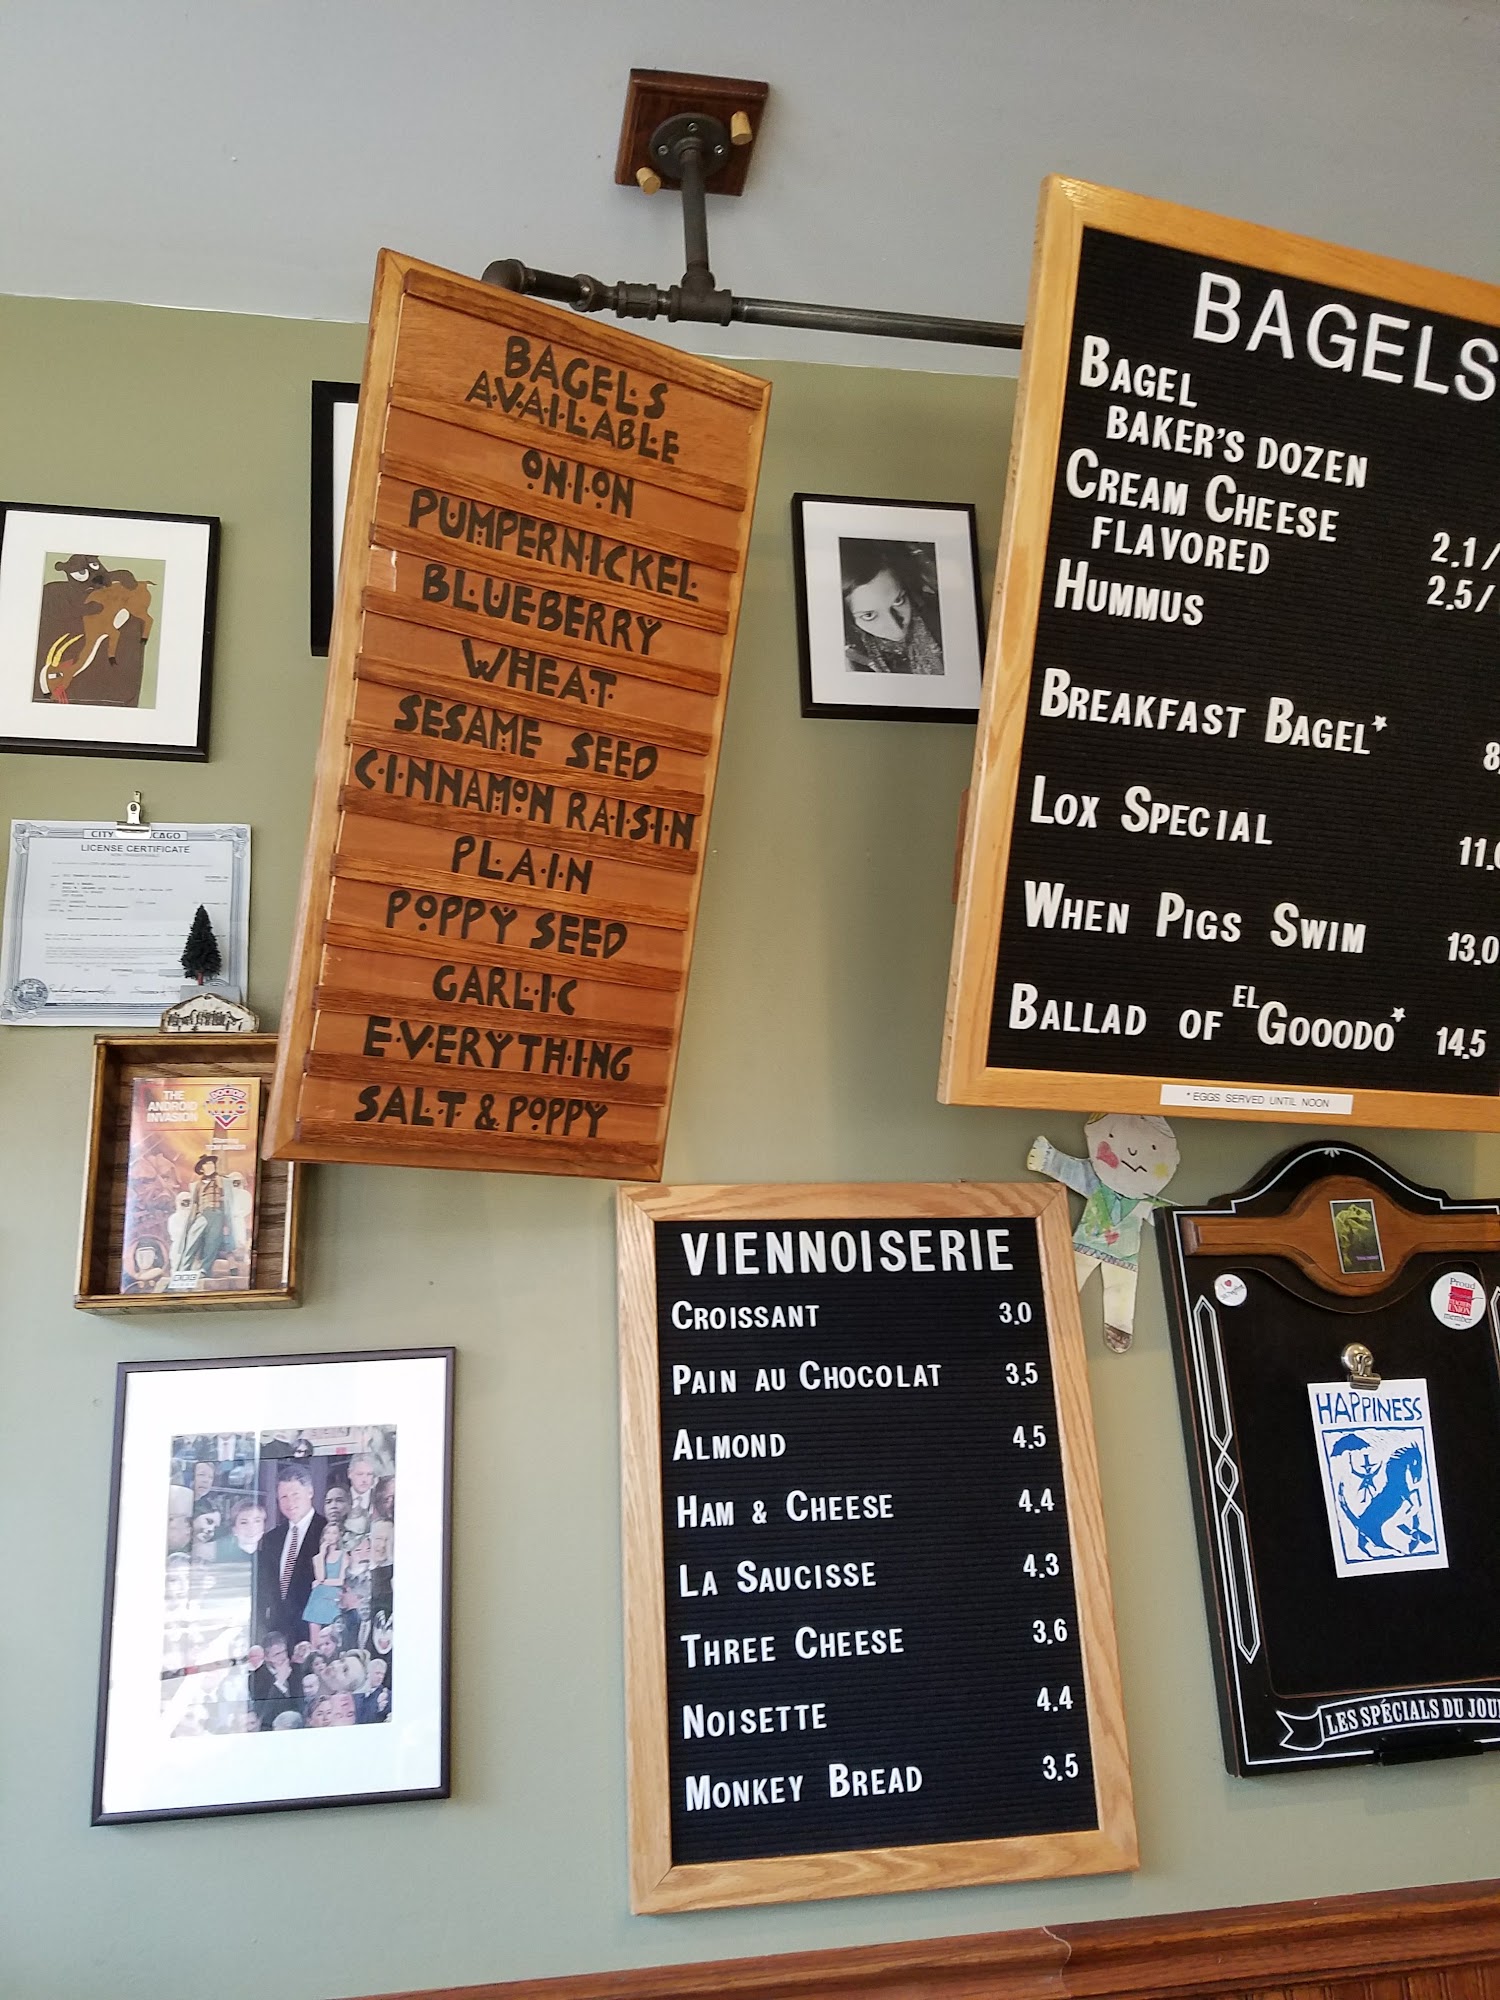 BAGELS
AVAILABLE
ONION
PUMPERNICKEL
BLUEBERRY
WHEAT
SESAME SEED
CINNAMON RAISIN
PLAIN
POPPY SEED
GARLIC
EVERYTHING
SALT & POPPY
BAGELS
BAGEL
BAKER'S DOZEN
CREAM CHEESE 2.1/
FLAVORED 2.5/
HUMMUS
BREAKFAST BAGEL* 8.
LOX SPECIAL 11.0
WHEN PIGS SWIM 13.0
BALLAD OF EL GOOODO* 14.5
*EGGS SERVED UNTIL NOON
LICENSE CERTIFICATE
THE
ANDROID
INVASION
DOCTOR
WHO
BBC
VIENNOISERIE
CROISSANT 3.0
PAIN AU CHOCOLAT 3.5
ALMOND 4.5
HAM & CHEESE 4.4
LA SAUCISSE 4.3
THREE CHEESE 3.6
NOISETTE 4.4
MONKEY BREAD 3.5
Proud
TEACHERS
UNION
member
HAPPINESS
LES SPÉCIALS DU JOU